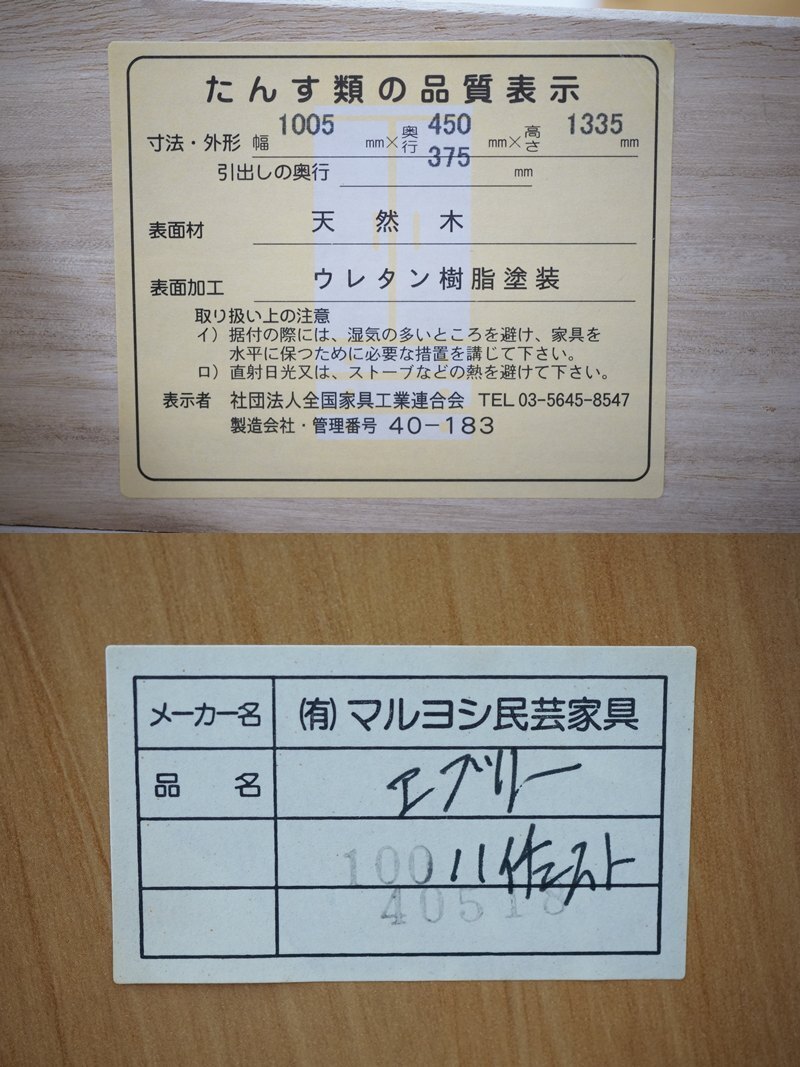 たんす類の品質表示
寸法・外形 幅 1005 mm×奥行 450 mm×高さ 1335 mm
引出しの奥行 375 mm
表面材 天然木
表面加工 ウレタン樹脂塗装
取り扱い上の注意
イ）据付の際には、湿気の多いところを避け、家具を
水平に保つために必要な措置を講じて下さい。
ロ）直射日光又は、ストーブなどの熱を避けて下さい。
表示者 社団法人全国家具工業連合会 TEL 03-5645-8547
製造会社・管理番号 40－183
メーカー名 ㈲マルヨシ民芸家具
品名 エブリー
100
40518